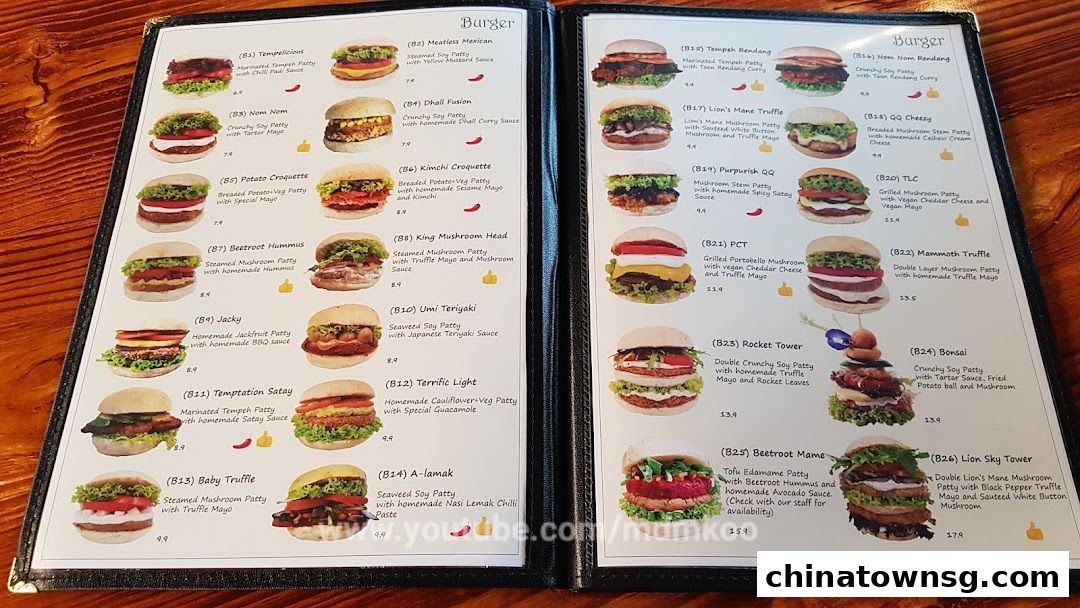 Burger
(B1) Tempelicious
Marinated Tempeh Patty
with Chilli Padi Sauce
6.9
(B2) Meatless Mexican
Steamed Soy Patty
with Yellow Mustard Sauce
7.9
(B3) Nom Nom
Crunchy Soy Patty
with Tartar Mayo
7.9
(B4) Dhall Fusion
Crunchy Soy Patty
with homemade Dhall Curry Sauce
7.9
(B5) Potato Croquette
Breaded Potato+Veg Patty
with Special Mayo
7.9
(B6) Kimchi Croquette
Breaded Potato+Veg Patty
with homemade Sesame Mayo
and Kimchi
8.9
(B7) Beetroot Hummus
Steamed Mushroom Patty
with homemade Hummus
8.9
(B8) King Mushroom Head
Steamed Mushroom Patty
with Truffle Mayo and Mushroom
Sauce
8.9
(B9) Jacky
Homemade Jackfruit Patty
with homemade BBQ sauce
8.9
(B10) Umi Teriyaki
Seaweed Soy Patty
with Japanese Teriyaki Sauce
8.9
(B11) Temptation Satay
Marinated Tempeh Patty
with homemade Satay Sauce
8.9
(B12) Terrific Light
Homemade Cauliflower+Veg Patty
with Special Guacamole
9.9
(B13) Baby Truffle
Steamed Mushroom Patty
with Truffle Mayo
9.9
(B14) A-lamak
Seaweed Soy Patty
with homemade Nasi Lemak Chilli
Paste
9.9
Burger
(B15) Tempeh Rendang
Marinated Tempeh Patty
with Toon Rendang Curry
9.9
(B16) Nom Nom Rendang
Crunchy Soy Patty
with Toon Rendang Curry
9.9
(B17) Lion's Mane Truffle
Lion's Mane Mushroom Patty
with Sauteed White Button
Mushroom and Truffle Mayo
9.9
(B18) QQ Cheezy
Breaded Mushroom Stem Patty
with homemade Cashew Cream
Cheese
9.9
(B19) Purpurish QQ
Mushroom Stem Patty
with homemade Spicy Satay
Sauce
9.9
(B20) TLC
Grilled Mushroom Patty
with Vegan Cheddar Cheese and
Vegan Mayo
11.9
(B21) PCT
Grilled Portobello Mushroom
with vegan Cheddar Cheese
and Truffle Mayo
11.9
(B22) Mammoth Truffle
Double Layer Mushroom Patty
with homemade Truffle Mayo
13.5
(B23) Rocket Tower
Double Crunchy Soy Patty
with homemade Truffle
Mayo and Rocket Leaves
13.9
(B24) Bonsai
Crunchy Soy Patty
with Tartar Sauce, Fried
Potato ball and Mushroom
13.9
(B25) Beetroot Mame
Tofu Edamame Patty
with Beetroot Hummus and
homemade Avocado Sauce.
(Check with our staff for
availability)
15.9
(B26) Lion Sky Tower
Double Lion's Mane Mushroom
Patty with Black Pepper Truffle
Mayo and Sauteed White Button
Mushroom
17.9
www.youtube.com/mdmkoo
chinatownsg.com